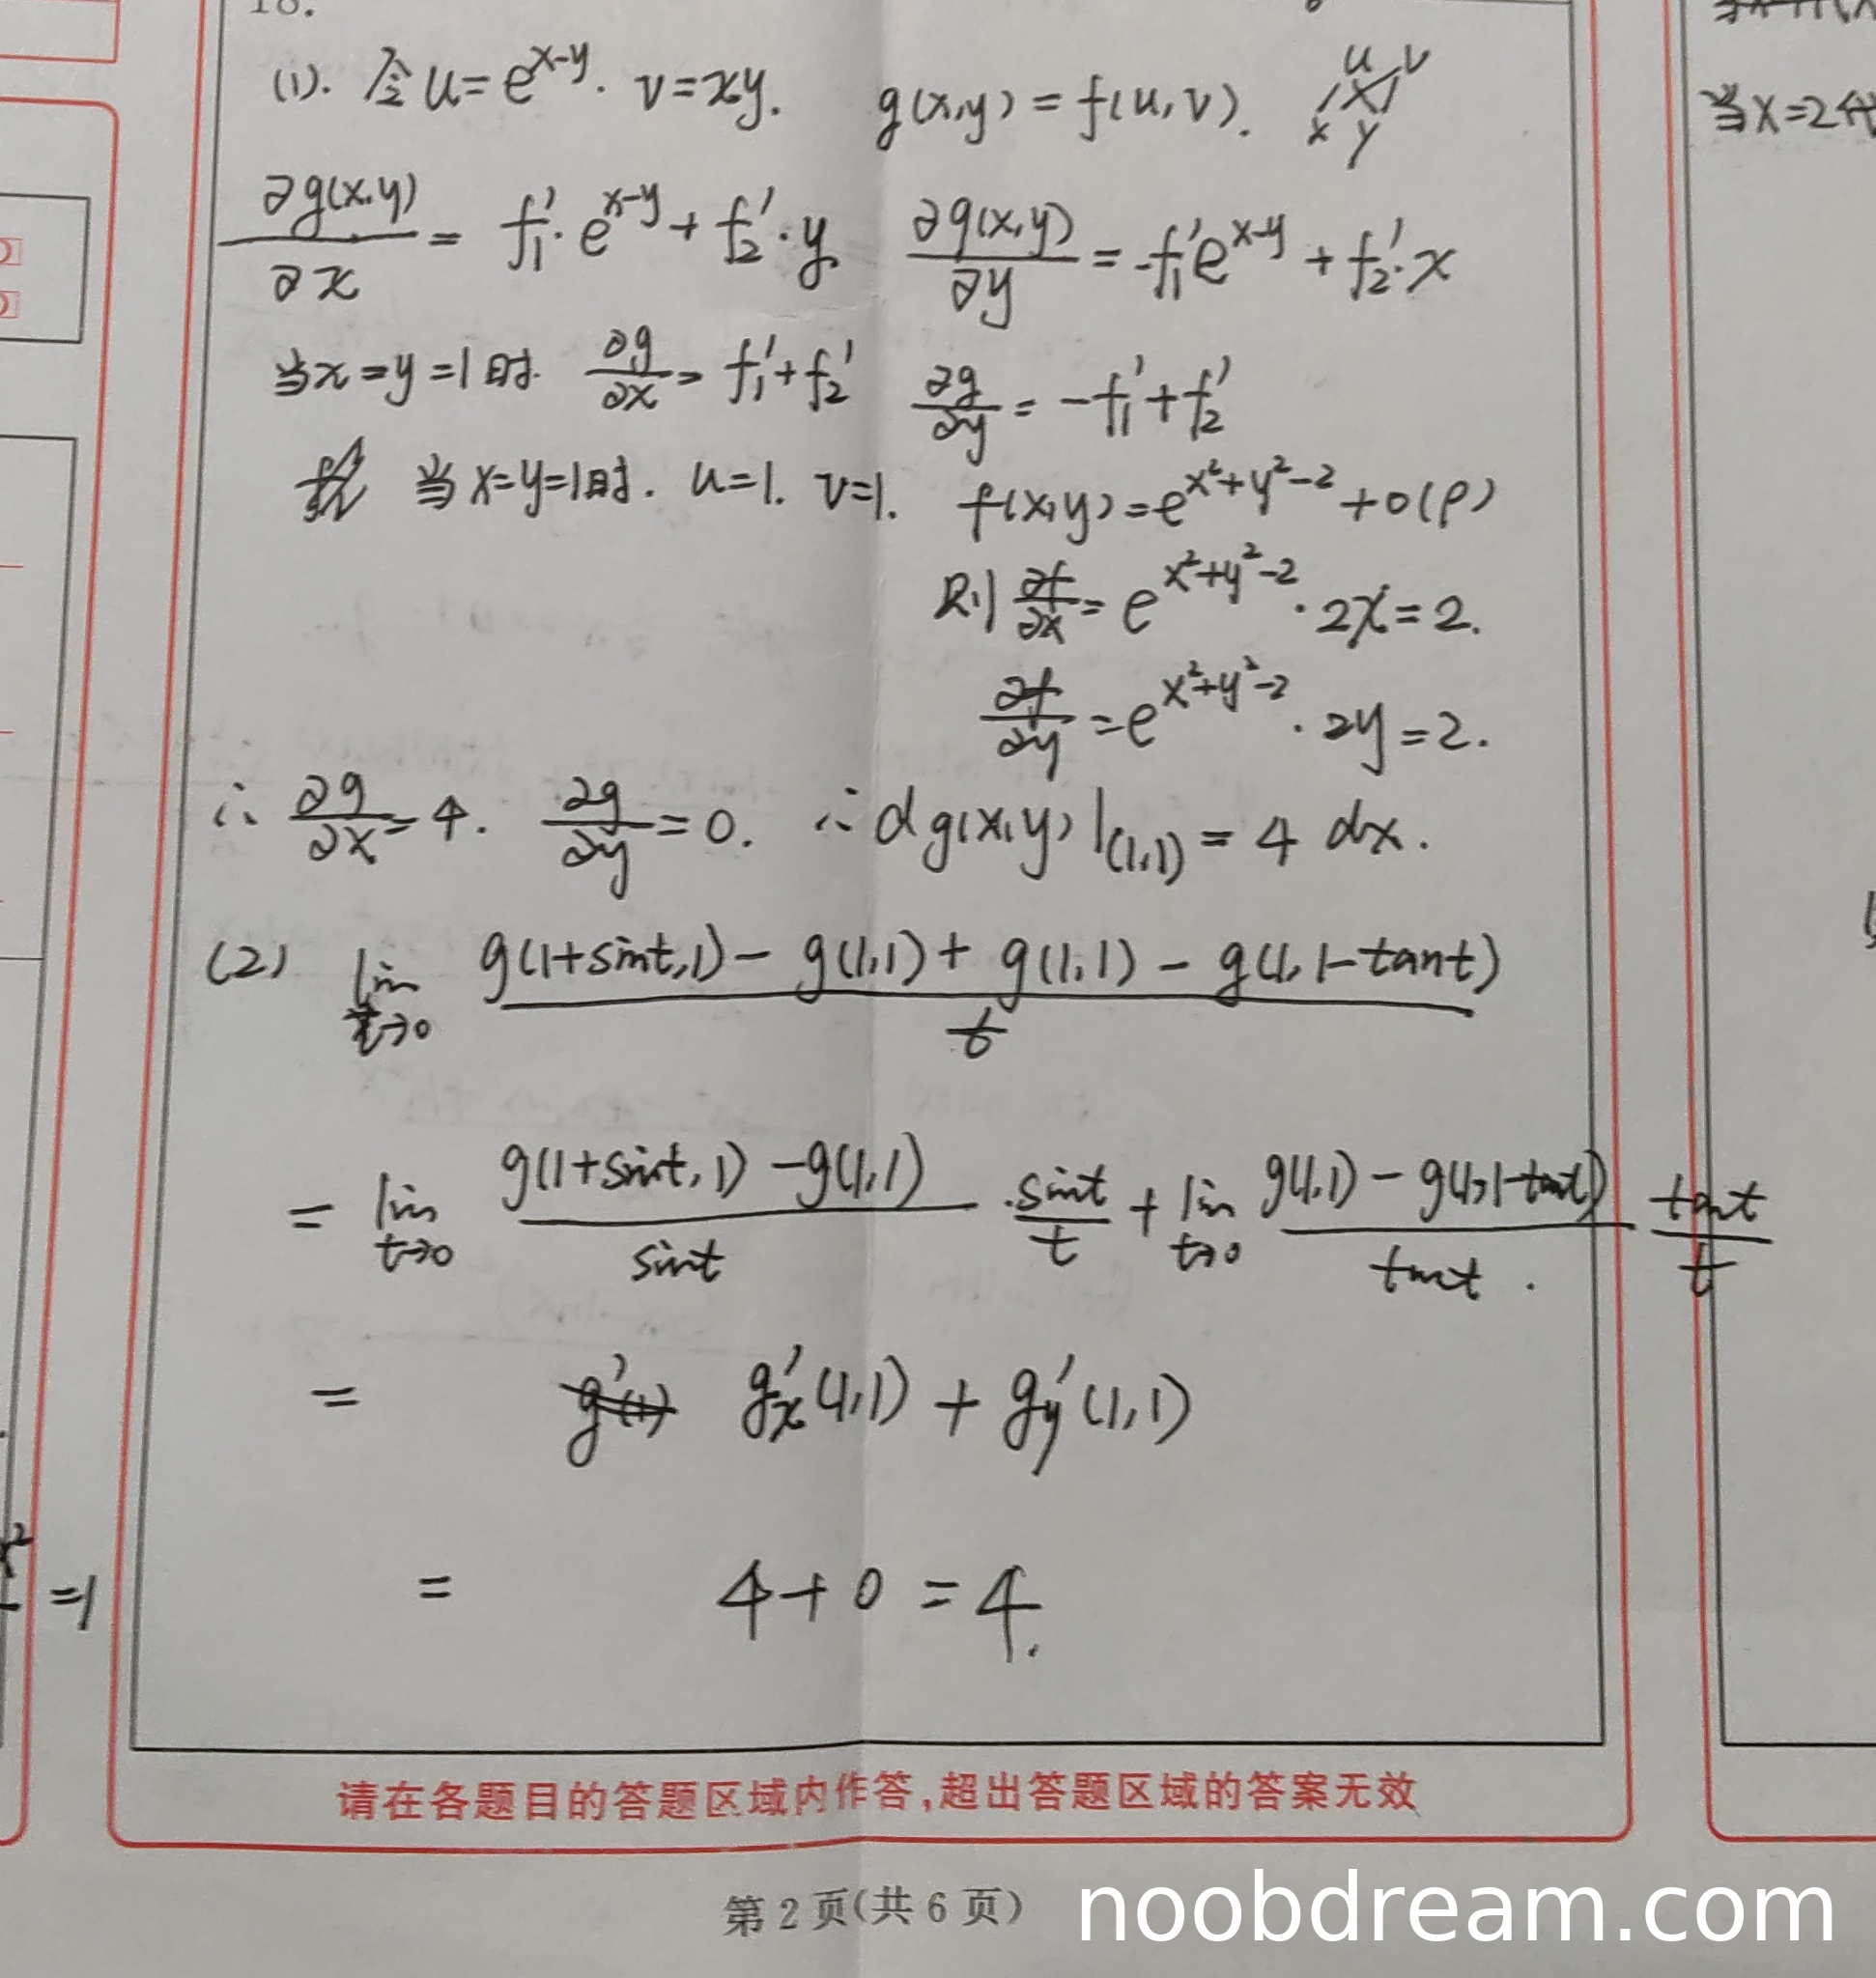 18.
(1). 令 u=e^{x-y}. v=xy. g(x,y)=f(u,v). u v
x y
∂g(x,y)/∂x = f₁'·e^{x-y}+f₂'·y ∂g(x,y)/∂y = -f₁'e^{x-y}+f₂'·x
当x=y=1时. ∂g/∂x = f₁'+f₂' ∂g/∂y = -f₁'+f₂'
当x=y=1时. u=1. v=1. f(x,y)=e^{x²+y²-2}+o(ρ)
则 ∂f/∂x = e^{x²+y²-2}·2x=2.
∂f/∂y = e^{x²+y²-2}·2y=2.
∴ ∂g/∂x=4. ∂g/∂y=0. ∴dg(x,y)|(1,1)=4 dx.
(2) lim t→0 [g(1+sint,1)-g(1,1)+g(1,1)-g(1,1-tant)]/t
= lim t→0 [g(1+sint,1)-g(1,1)]/sint · sint/t + lim t→0 [g(1,1)-g(1,1-tant)]/tant · tant/t
= g'(1) g'x(1,1)+g'y(1,1)
= 4+0=4.
请在各题目的答题区域内作答,超出答题区域的答案无效
第2页(共6页)
当x=2
x²
=1
noobdream.com